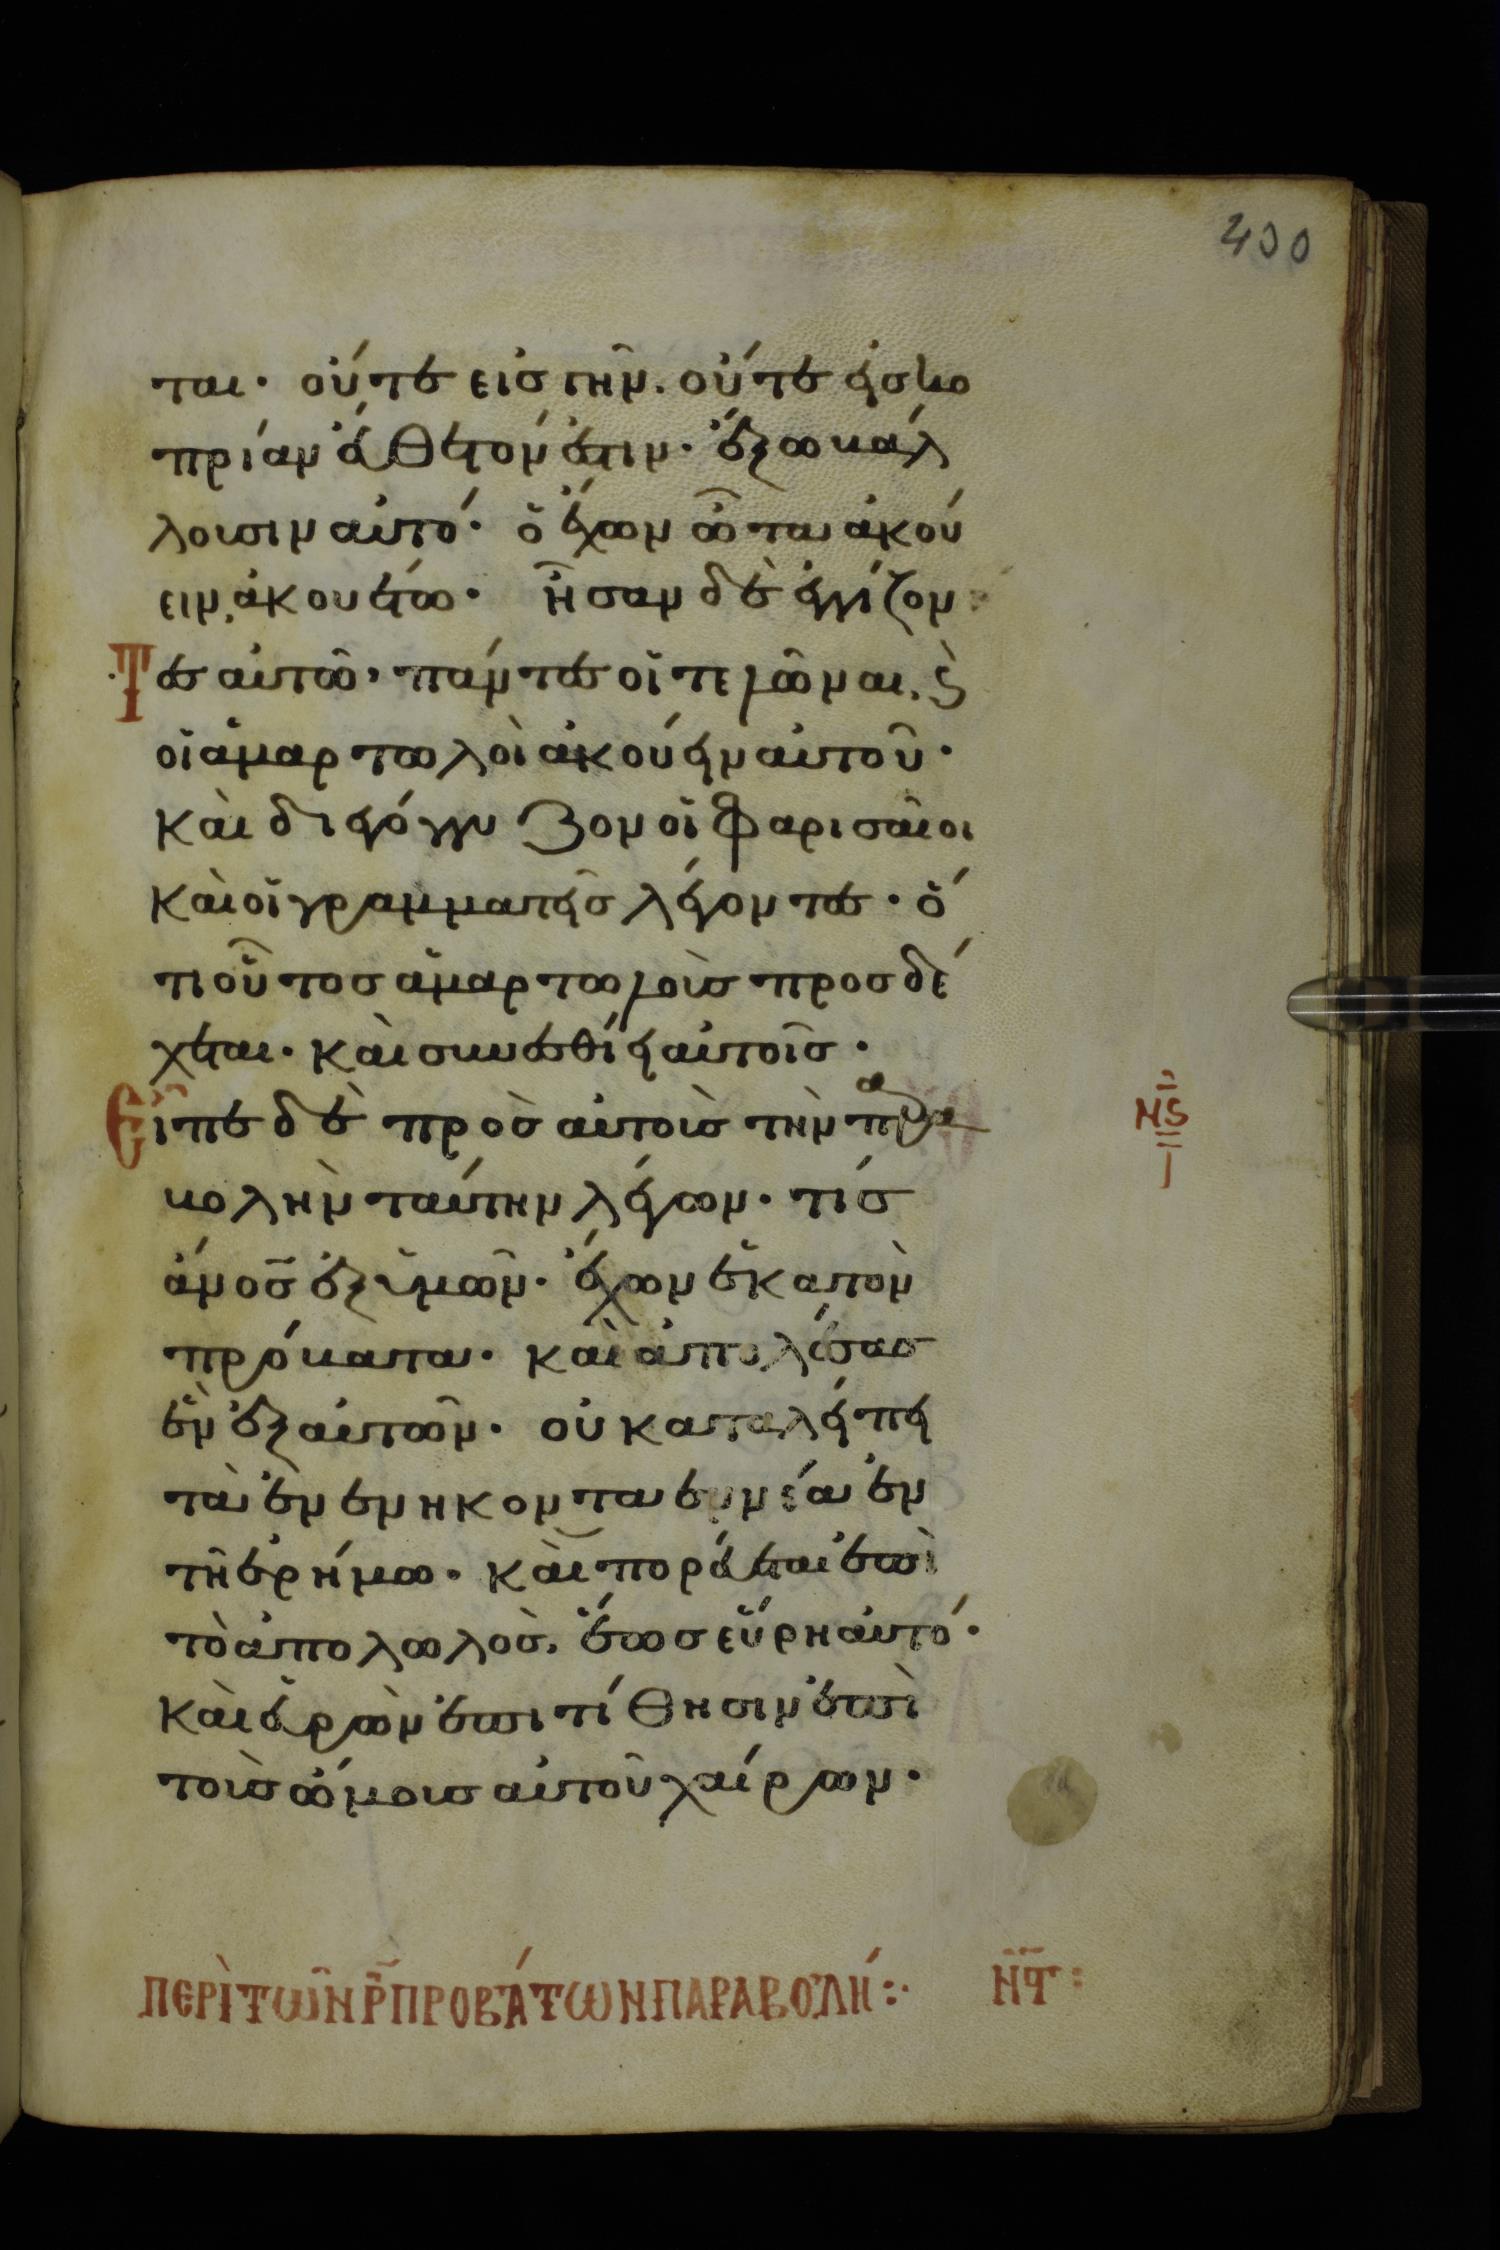 400
ται· οὔτε εἰς γῆν. οὔτε εἰς κο
πρίαν εὔθετόν ἐστιν· ἔξω βάλ
λουσιν αὐτό· ὁ ἔχων ὦτα ἀκού
ειν, ἀκουέτω· ἦσαν δὲ ἐγγίζον
τες αὐτῶ, πάντες οἱ τελῶναι, ϗ
οἱ ἁμαρτωλοὶ ἀκούειν αὐτοῦ·
καὶ διεγόγγυζον οἱ φαρισαῖοι
καὶ οἱ γραμματεῖς λέγοντες· ὅ
τι οὗτος ἁμαρτωλοὺς προσδέ
χεται· καὶ συνεσθίει αὐτοῖς·
Εἶπε δὲ πρὸς αὐτοὺς τὴν παρα
βολὴν ταύτην λέγων· τίς
ἄνος ἐξ ὑμῶν· ἔχων ἑκατὸν
πρόβατα· καὶ ἀπολέσας
ἓν ἐξ αὐτῶν· οὐ καταλείπει
τὰ ἐνενηκονταεννέα ἐν
τῆ ἐρήμω· καὶ πορεύεται ἐπὶ
τὸ ἀπολωλὸς, ἕως εὕρη αὐτό·
καὶ εὑρὼν ἐπιτίθησιν ἐπὶ
τοὺς ὤμους αὐτοῦ χαίρων·
ΠΕΡῚ ΤΩ͂Ν Ρ̄ ΠΡΟΒΆΤΩΝ ΠΑΡΑΒΟΛΉ:·